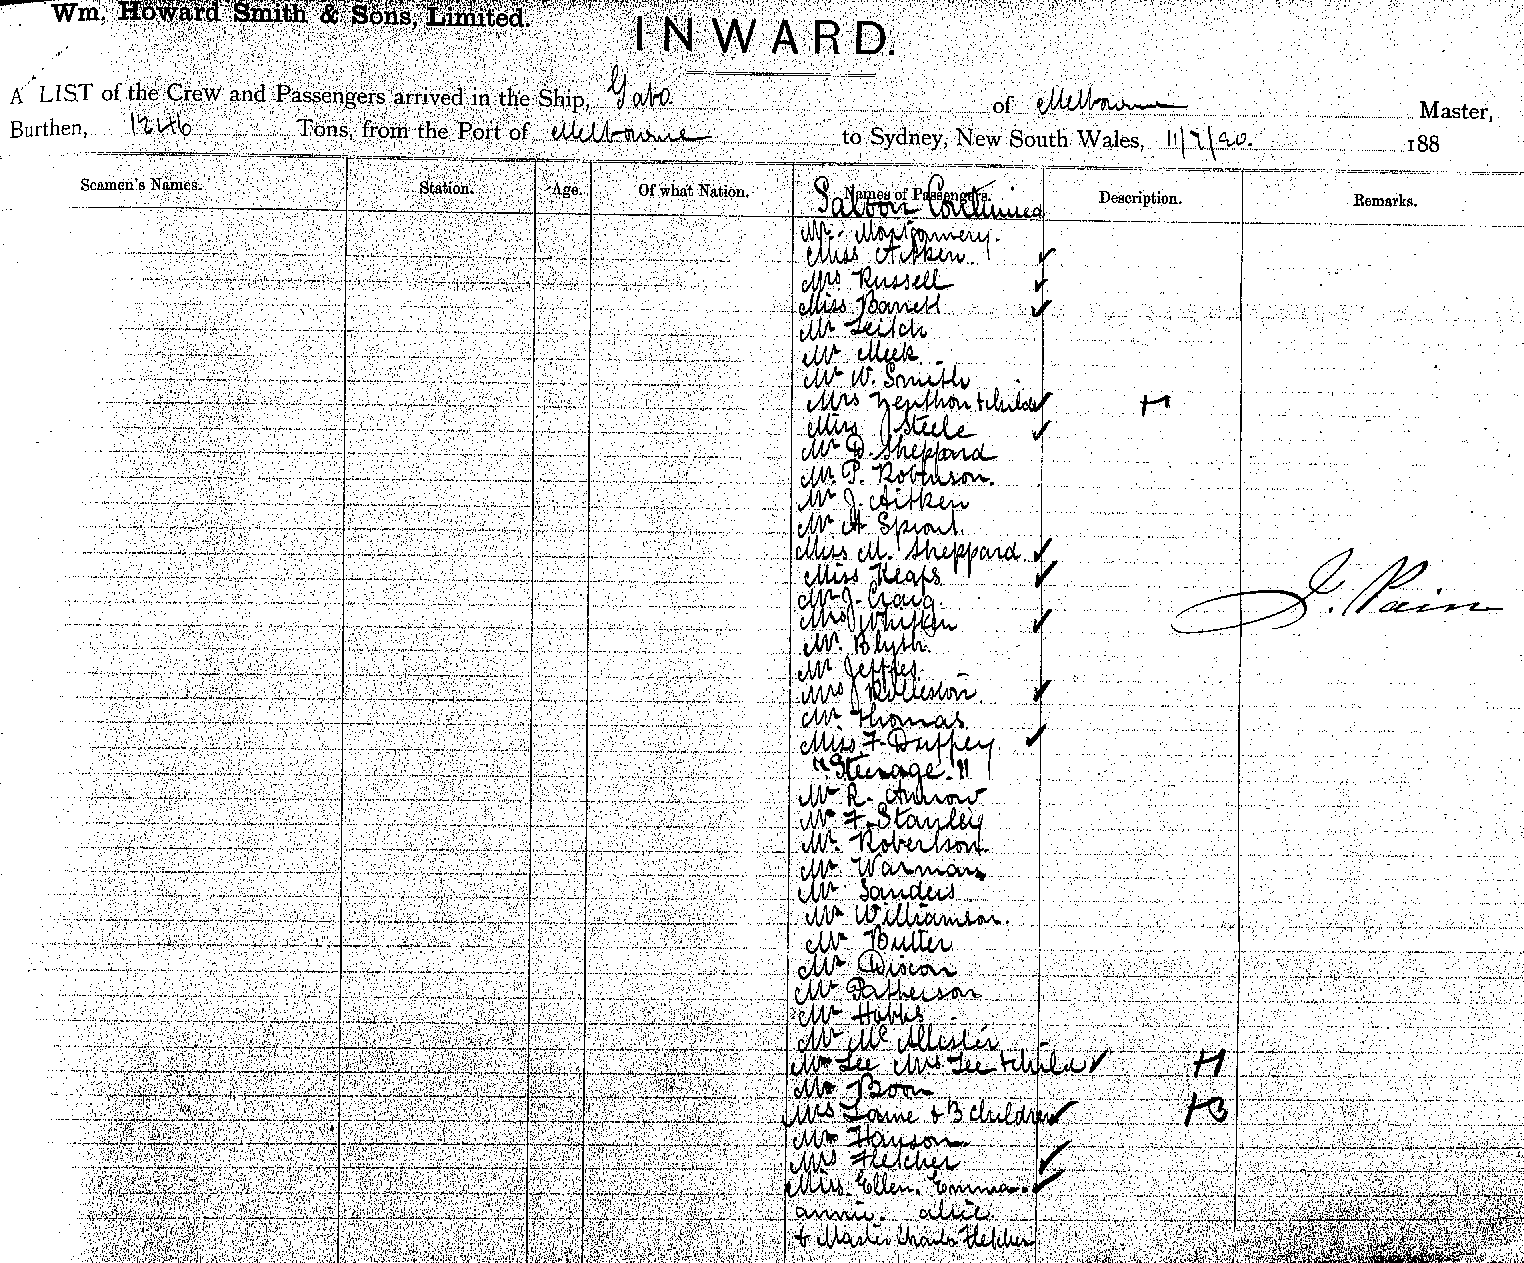 Wm. Howard Smith & Sons, Limited.
INWARD.
A LIST of the Crew and Passengers arrived in the Ship, Gabo of Melbourne Master,
Burthen, 1246 Tons, from the Port of Melbourne to Sydney, New South Wales, 11/7/90. 188
Seamen's Names. Station. Age. Of what Nation. Names of Passengers. Description. Remarks.
Saloon Continued
Mr. Montgomery.
Miss Aitken ✓
Mrs Russell ✓
Miss Barrett ✓
Mr Leitch
Mr Meek
Mr W. Smith
Mrs + child ✓ +1
Steele ✓
Mr D. Sheppard
Mr. P. Robinson.
Mr J. Aitken
Mr A Sproul.
Miss M. Sheppard ✓
Miss ✓
Mr J. Craig
Mrs ✓
Mr. Blyth.
Mr Jeffries.
Mrs Rolleston ✓
Mr Thomas
Miss F. Duffey ✓
"Steerage."
Mr R. Annow
Mr F. Stanley
Mr. Robertson.
Mr Warman
Mr Sanders
Mr Williamson.
Mr Butter
Mr Discon
Mr Patherson
Mr Hobbs
Mr McAllister
Mr Lee Mrs Lee + child ✓ +1
Mr Boon
Mrs + 3 children ✓ +3
Mr Hanson
Mrs Fletcher ✓
Miss. Ellen. Emma. ✓
annie. alice
+ Master Charles Fletcher
J. Pain